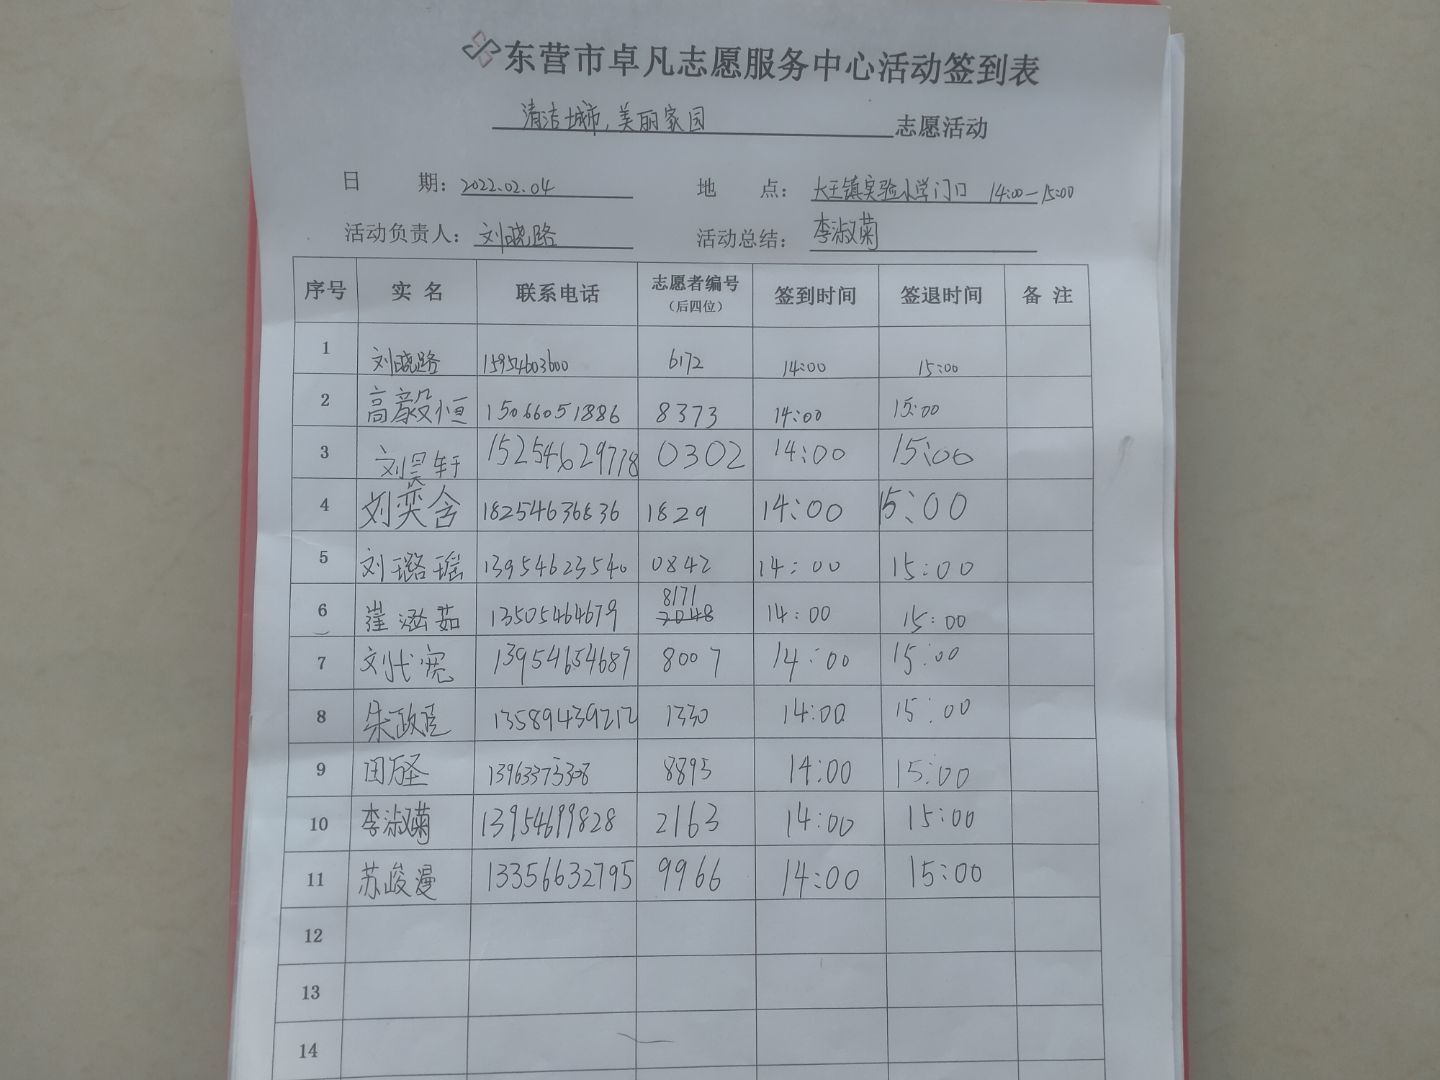 东营市卓凡志愿服务中心活动签到表
清洁城市,美丽家园 志愿活动
日 期: 2022.02.04 地 点: 大王镇实验小学门口 14:00-15:00
活动负责人: 刘晓路 活动总结: 李淑菊
序号 实 名 联系电话 志愿者编号 签到时间 签退时间 备 注
(后四位)
1 刘晓路 15954603600 6172 14:00 15:00
2 高毅恒 15066051886 8373 14:00 15:00
3 刘昊轩 15254629778 0302 14:00 15:00
4 刘奕含 18254636836 1829 14:00 15:00
5 刘璐瑶 13954623540 0842 14:00 15:00
8171
6 崔涵茹 13505464679 2048 14:00 15:00
7 刘弋宪 13954654687 8007 14:00 15:00
8 朱政 13589439212 1330 14:00 15:00
9 田万圣 13963375308 8895 14:00 15:00
10 李淑菊 13954699828 2163 14:00 15:00
11 苏峻漫 13356632795 9966 14:00 15:00
12
13
14